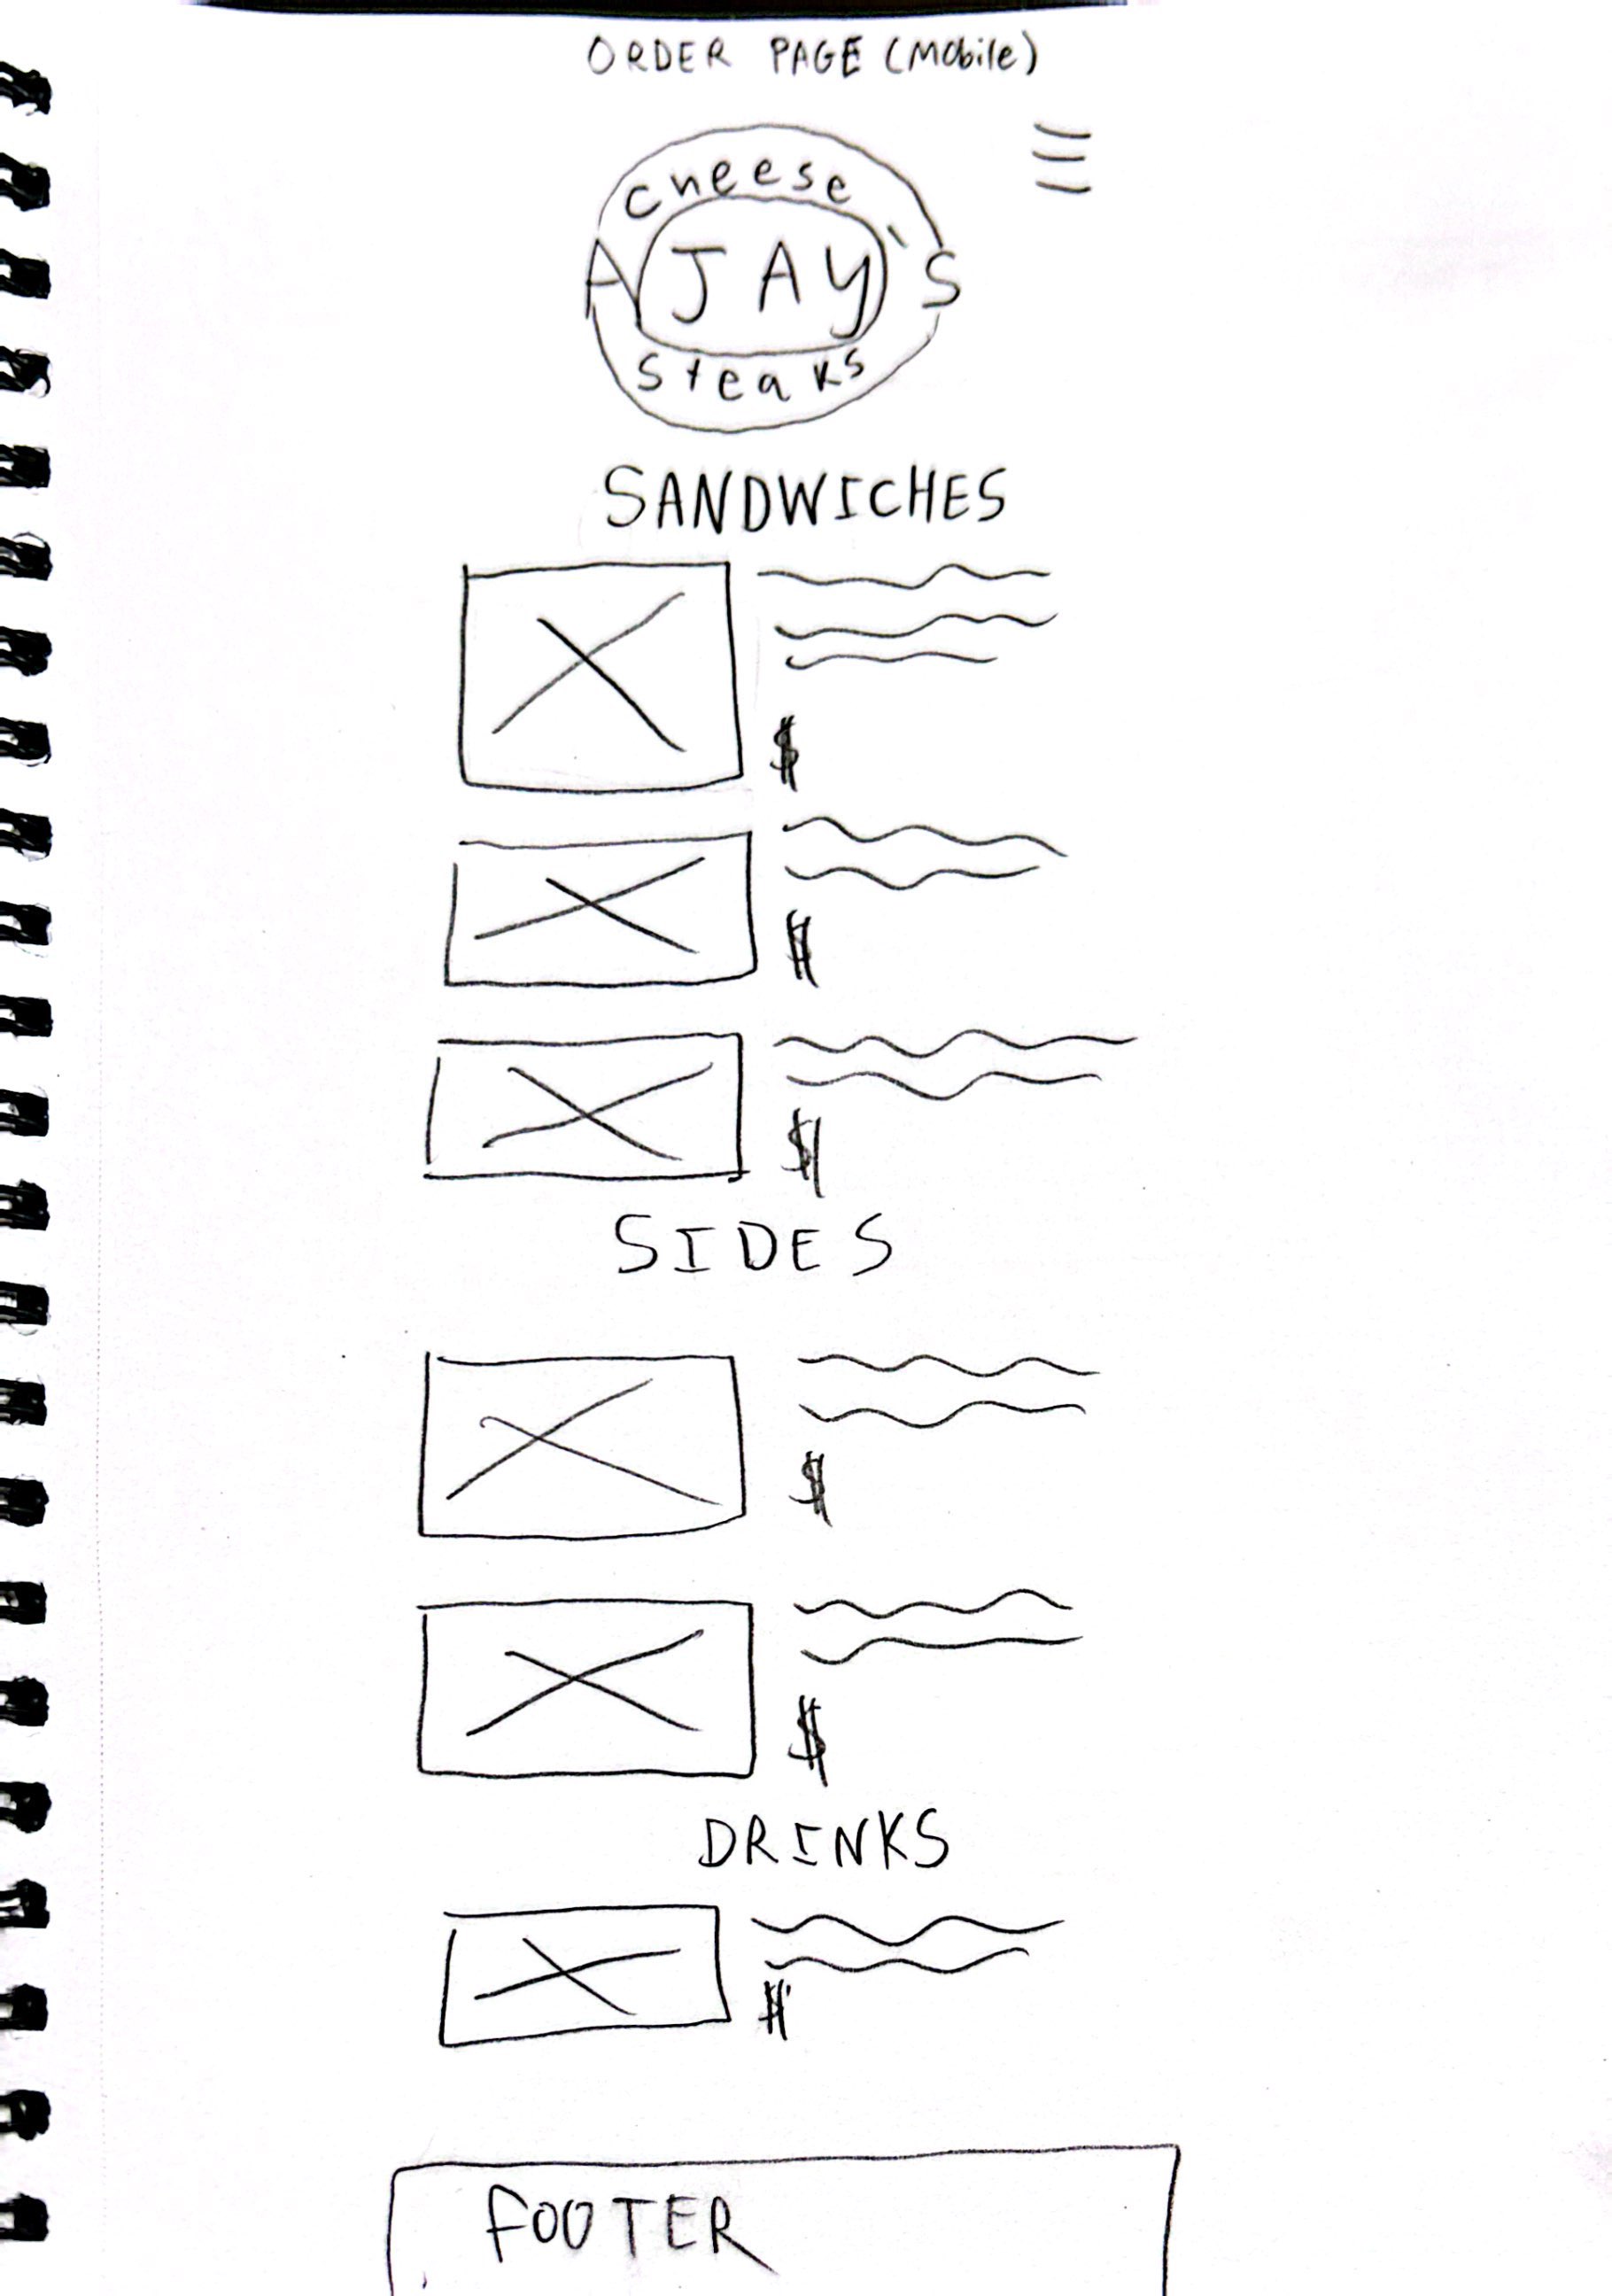 ORDER PAGE (Mobile)
cheese
AJAY's
steaks
SANDWICHES
$
$
$
SIDES
$
$
DRINKS
$
FOOTER